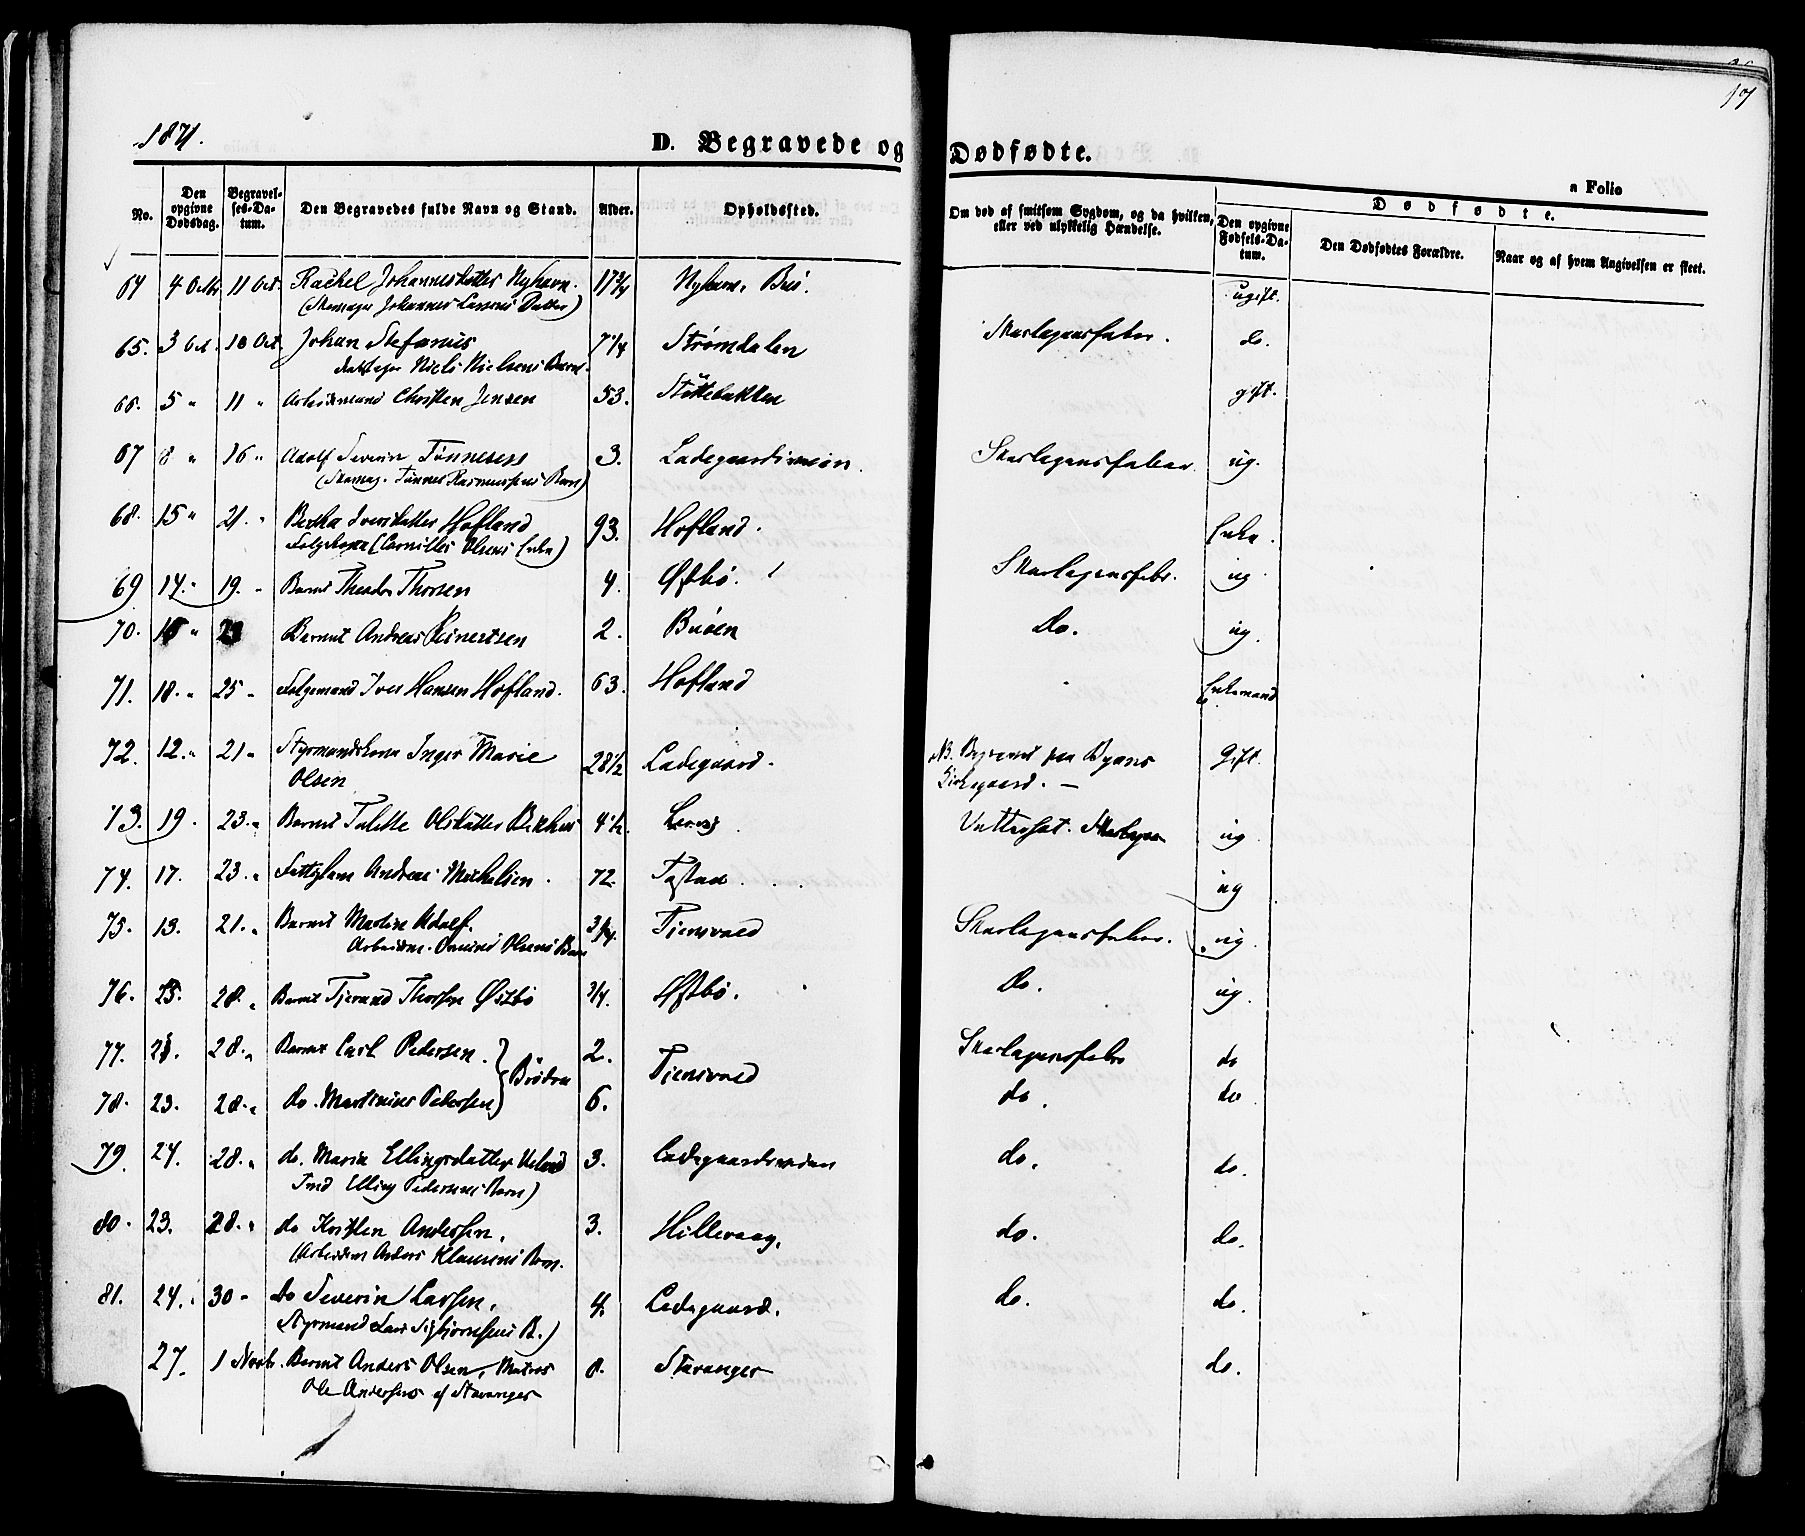 17
1871.
D. Begravede og Dødfødte.
a Folio
No.
Den opgivne Dødsdag.
Begravelses-Datum.
Den Begravedes fulde Navn og Stand.
Alder.
Opholdssted.
Om død af smitsom Sygdom, og da hvilken, eller ved ulykkelig Hændelse.
Dødfødte.
Den opgivne Fødsels-Datum.
Den Dødfødtes Forældre.
Naar og af hvem Angivelsen er skeet.
64 4 Octbr 11 Oct. Rachel Johannesdatter Nyhavn. 17 3/4 Nyhavn. Buø. ugift.
(Skomager Johannes Larsens Datter)
65. 3 Oct. 10 Oct. Johan Stefanus 7 1/4 Strømdalen Skarlagensfeber. do.
Niels Nielsens Barn.
66. 5 " 11 " Arbeidsmand Christen Jensen 53. Støttebakken gift.
67 8 " 16 " Adolf Severin Tønnesen 3. Ladegaardsveien. Skarlagensfeber ug.
(Skomag. Tønnes Rasmussens Barn)
68. 15 " 21. " Bertha Iversdatter Hofland 93. Hofland. Enke.
Folgekone (Cornilles Olsens Enke)
69 14. " 19. " Barnet Theodor Thorsen 4. Østbø. Skarlagensfeber. ug.
70. 15 " 21 Barnet Andreas Reinertsen 2. Buøen Do. ug.
71. 18. " 25 " Folgemand Iver Hansen Hofland. 63. Hofland Enkemand
72. 12. " 21 " Styrmandskone Inger Marie 28 1/2 Ladegaard. NB. Begravet paa Byens Gift.
Olsen Kirkegaard. —
73. 19. 23. " Barnet Talette Olsdatter 4 1/2 Vattersot. ug
74. 17. 23. " Fattiglem Andreas Michelsen. 72. Tastad. ug
75. 13. 21. " Barnet Martin Adolf. 3/4. Tjensvold Skarlagensfeber. ug.
Arbeidsm. Olsens Barn
76. 25. 28. " Barnet Tjerand Thorsen Østbø 3/4. Østbø. Do. ug.
77. 28. " Barnet Carl Pedersen. } Brødre 2. Tjensvold Skarlagensfeber do
78. 23. 28. " do. Martinius Pedersen 6. do. do
79. 24. 28. " do. Maria Ellingsdatter 3. Ladegaardsveien do. do.
Elling Pedersens Barn)
80. 23. 28. " do Kristen Andersen. 3. Hillevaag. do. do.
(Arbeidsm Anders Klausens Barn.
81. 24. 30 " Do Severin Larsen. 4. Ladegaard. do. do.
(Styrmand Lars Sigbjørnsens B.)
27. 1 Novbr. Barnet Anders Olsen, Matros 8. Stavanger do.
Ole Andersens af Stavanger